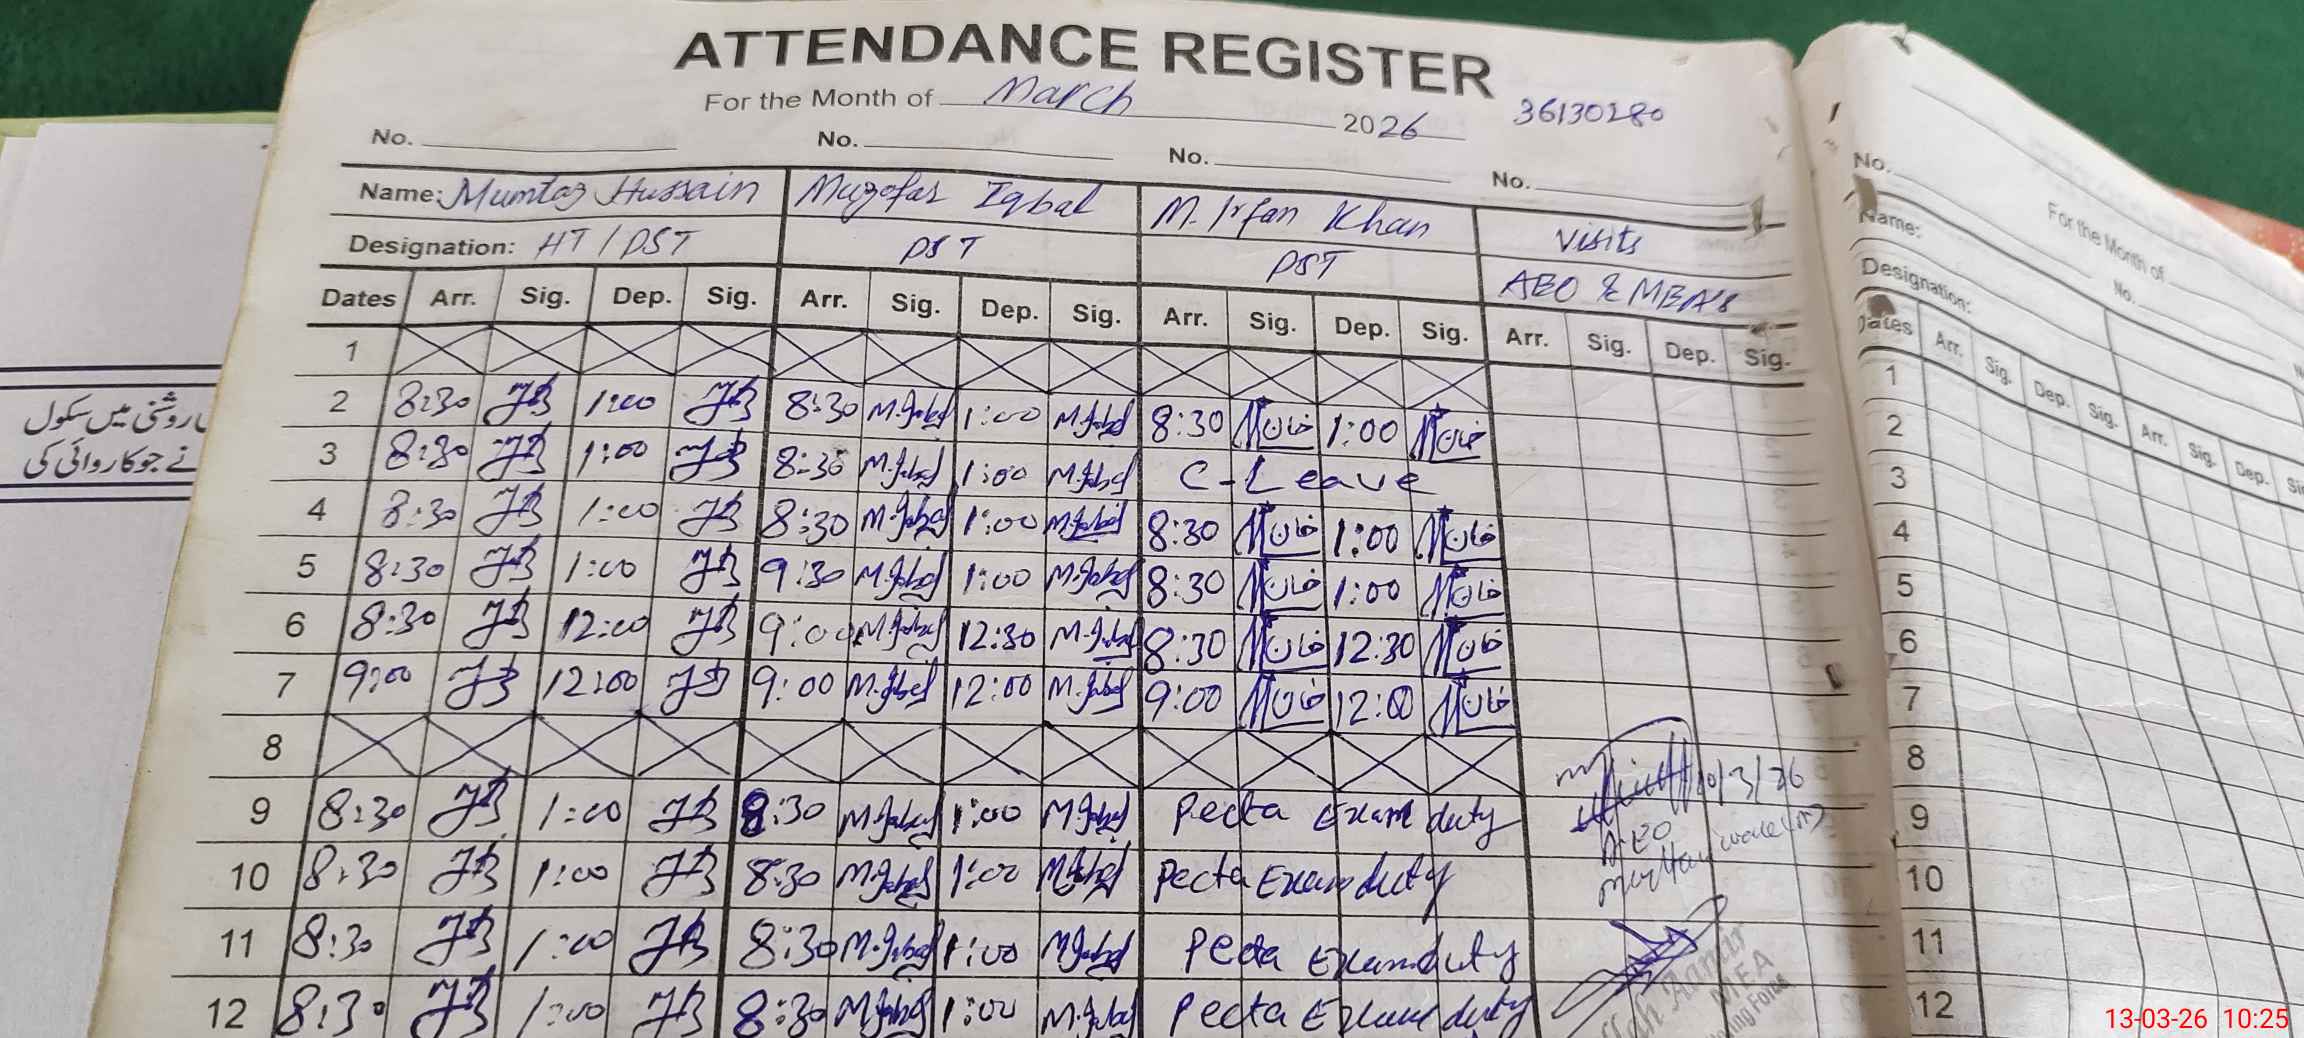 ATTENDANCE REGISTER
For the Month of March 2026 36130280
No. No. No. No.
Name: Mumtaz Hussain Muzafar Iqbal M. Irfan Khan Visits
Designation: HT / PST PST PST AEO & MEA's
Dates Arr. Sig. Dep. Sig. Arr. Sig. Dep. Sig. Arr. Sig. Dep. Sig. Arr. Sig. Dep. Sig.
1
2 8:30 1:00 8:30 M.Iqbal 1:00 M.Iqbal 8:30 خان 1:00 خان
3 8:30 1:00 8:30 M.Iqbal 1:00 M.Iqbal C-Leave
4 8:30 1:00 8:30 M.Iqbal 1:00 M.Iqbal 8:30 خان 1:00 خان
5 8:30 1:00 9:30 M.Iqbal 1:00 M.Iqbal 8:30 خان 1:00 خان
6 8:30 12:00 9:00 M.Iqbal 12:30 M.Iqbal 8:30 خان 12:30 خان
7 9:00 12:00 9:00 M.Iqbal 12:00 M.Iqbal 9:00 خان 12:00 خان
8
9 8:30 1:00 8:30 M.Iqbal 1:00 M.Iqbal Pecta Exam duty 10/3/26
AEO
10 8:30 1:00 8:30 M.Iqbal 1:00 M.Iqbal Pecta Exam duty
11 8:30 1:00 8:30 M.Iqbal 1:00 M.Iqbal Pecta Exam duty
MEA
12 8:30 1:00 8:30 M.Iqbal 1:00 M.Iqbal Pecta Exam duty
روشنی میں سکول
نے جو کاروائی کی
No.
For the Month of
Name: No.
Designation:
Dates Arr. Sig. Dep. Sig. Arr. Sig. Dep.
1
2
3
4
5
6
7
8
9
10
11
12
13-03-26 10:25